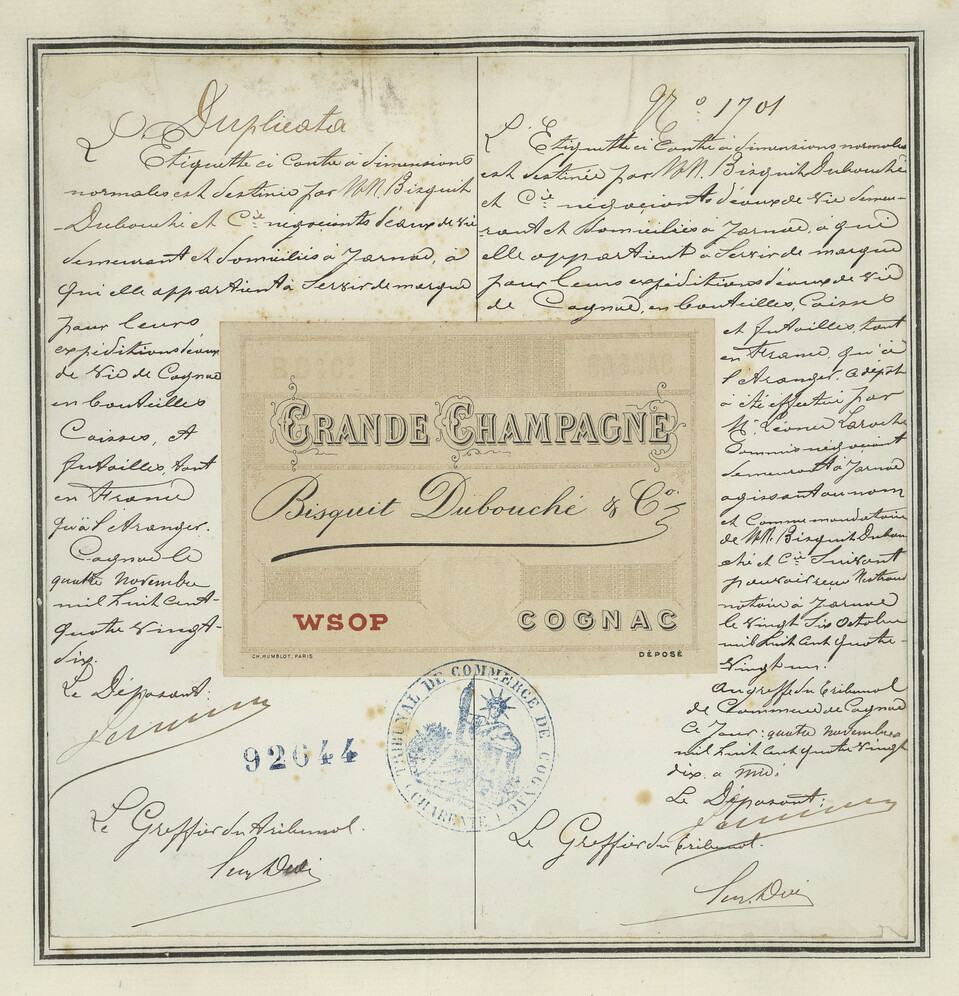 Duplicata
L'Etiquette ci Contre à dimensions
normales est destinée par MM. Bisquit
Dubouché et Cie négociants d'eaux de Vie
demeurant et domiciliés à Jarnac, à
qui elle appartient à Servir de marque
pour leurs
expéditions d'eaux
de Vie de Cognac
en bouteilles
Caisses, et
futailles, tant
en France
qu'à l'étranger.
Cognac le
quatre novembre
mil huit cent
quatre vingt-
dix.
Le Déposant:
92644
Le Greffier du tribunal.
No 1701
L'Etiquette ci Contre à dimensions normales
est destinée par MM. Bisquit Dubouché
et Cie négociants d'eaux de Vie demeu-
rant et domiciliés à Jarnac, à qui
elle appartient à Servir de marque
pour leurs expéditions d'eaux de Vie
de Cognac, en bouteilles, Caisses
et futailles, tant
en France, qu'à
l'étranger. Ce dépôt
à été effectué par
M. Laroche
Commis négociant
demeurant à Jarnac
agissant au nom
et Comme mandataire
de MM. Bisquit Dubou-
ché et Cie Suivant
pouvoir reçu
notaire à Jarnac
le vingt Six Octobre
mil huit cent quatre-
vingt un.
au greffe du tribunal
de Commerce de Cognac
Ce Jour: quatre novembre
mil huit cent quatre vingt
dix. a midi
Le Déposant:
Le Greffier du tribunal.
GRANDE CHAMPAGNE
Bisquit Dubouché & Co.
WSOP COGNAC
CH. HUMBLOT, PARIS DÉPOSÉ
TRIBUNAL DE COMMERCE DE COGNAC
(CHARENTE)